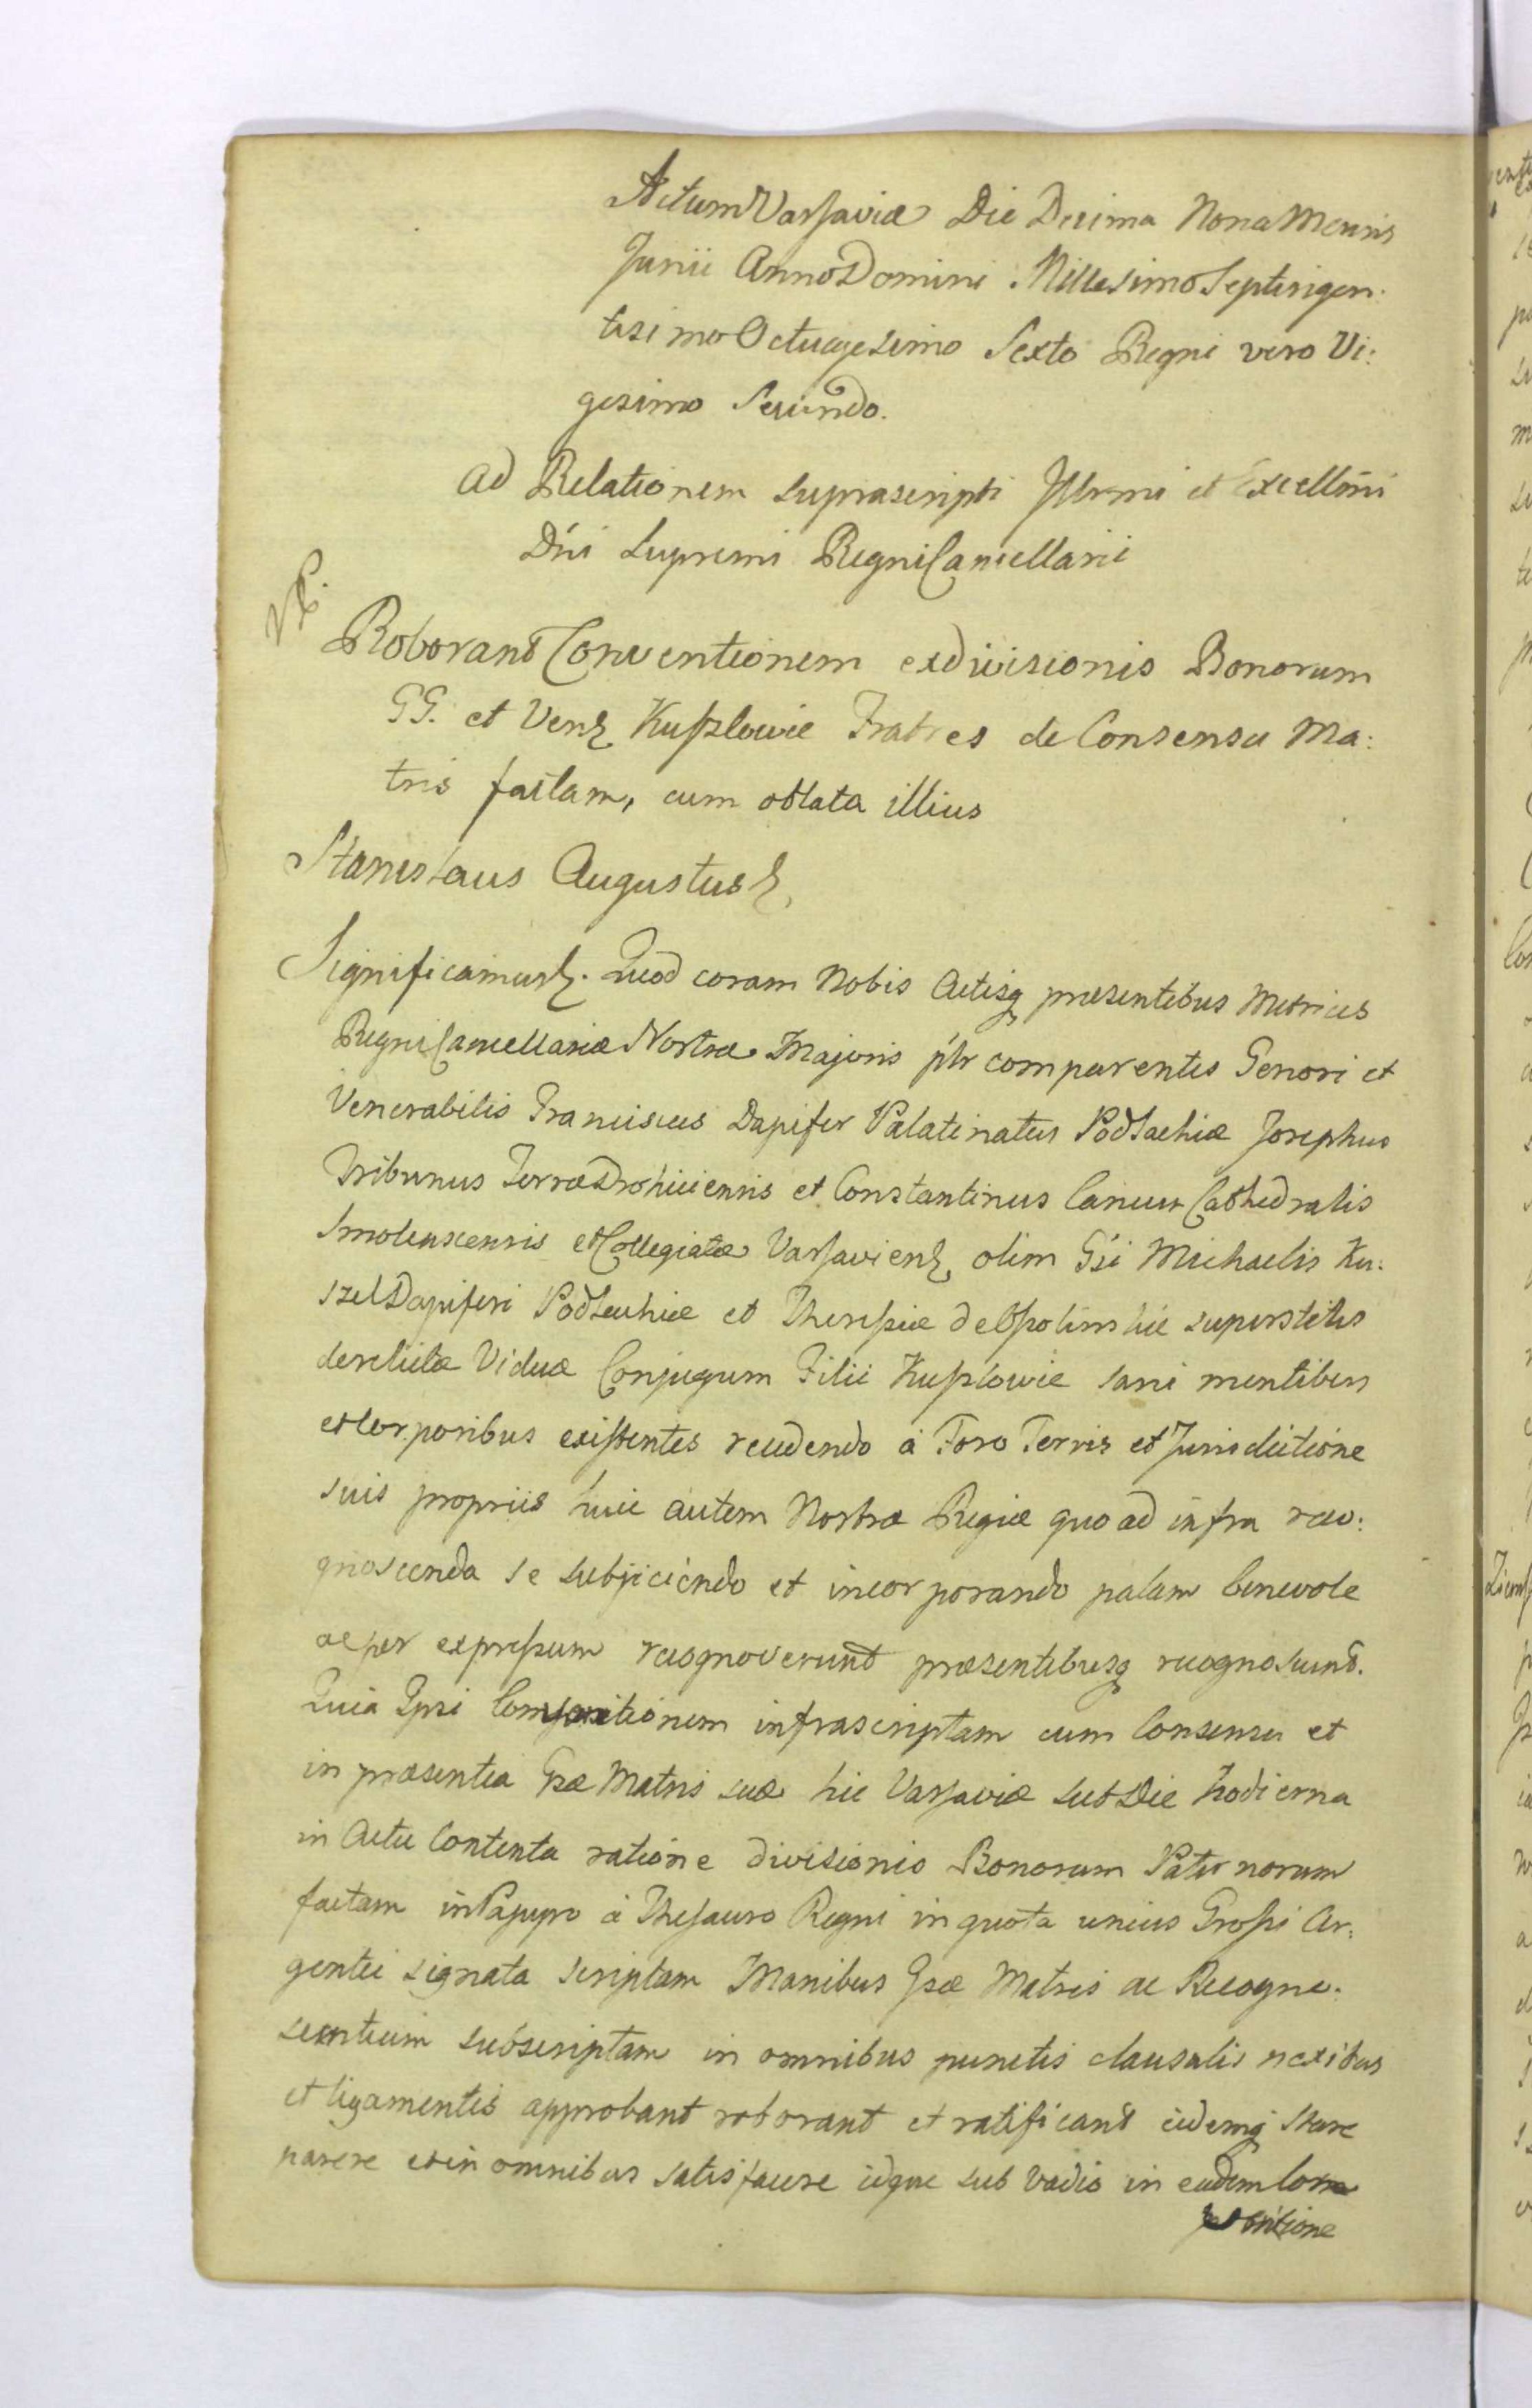 Actum Varsaviæ Die Decima Nona Mensis
Junii Anno Domini Millesimo Septingen:
tesimo Octuagesimo Sexto Regni vero Vi:
gesimo Secundo.
Ad Relationem suprascripti Illrmi et Excellmi
Dni Supremi Regni Cancellarii
Roborant Conventionem exdivisionis Bonorum
GG. et Ven: Kuszlowie Fratres de Consensu Ma:
tris factam, cum oblata illius
Stanislaus Augustus
Significamus. Quod coram Nobis Actisq præsentibus Metrices
Regni Cancellariæ Nostræ Majoris plr comparentes Genosi et
Venerabilis Franciscus Dapifer Palatinatus Podlachiæ Josephus
Tribunus Terræ Drohiciensis et Constantinus Canicus Cathedralis
Smolenscensis et Collegiatæ Varsavien, olim Gsi Michaelis Ku:
szel Dapiferi Podlachiæ et Theresiæ de superstitis
derelictæ Viduæ Conjugum Filii Kuszlowie sani mentibus
et Corporibus existentes recedendo à Foro Terris et Jurisdictione
suis propriis huic autem Nostræ Regiæ quoad infra reco:
gnoscenda se subjiciendo et incorporando palam benevole
ac per expressum recognoverunt præsentibusq recognoscunt.
Quia Ipsi Compositionem infrascriptam cum Consensu et
in præsentia Gsæ Matris suæ hic Varsaviæ sub Die hodierna
in Actu Contenta ratione divisionis Bonorum Paternorum
factam in Papyro à Thesauro Regni in quota unius Grossi Ar:
gentei signata scriptam Manibus Gsæ Matris ac Recogno:
scentium subscriptam in omnibus punctis clausulis nexibus
et ligamentis approbant roborant et ratificant eidemq stare
parere et in omnibus satisfacere idque sub vadio in eadem Com
positione